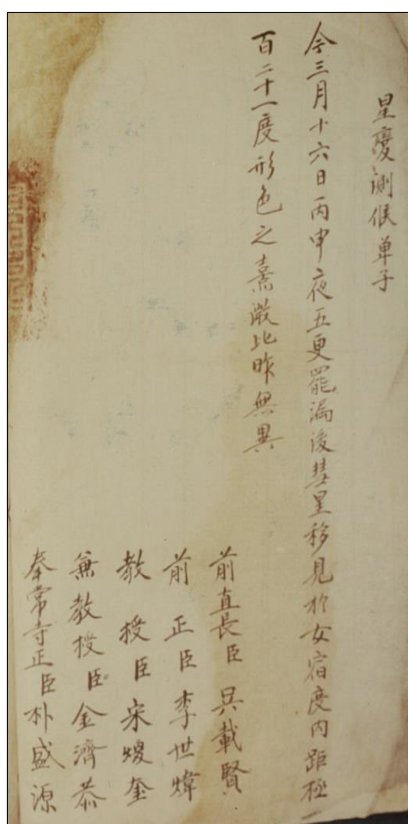 星變測候單子
今三月十六日丙申夜五更罷漏後彗星移見於女宿度內距極一
百二十一度形色之熹微比昨無異
前直長臣吳載賢
前正臣李世煒
教授臣宋㷜奎
兼教授臣金濟恭
奉常寺正臣朴盛源